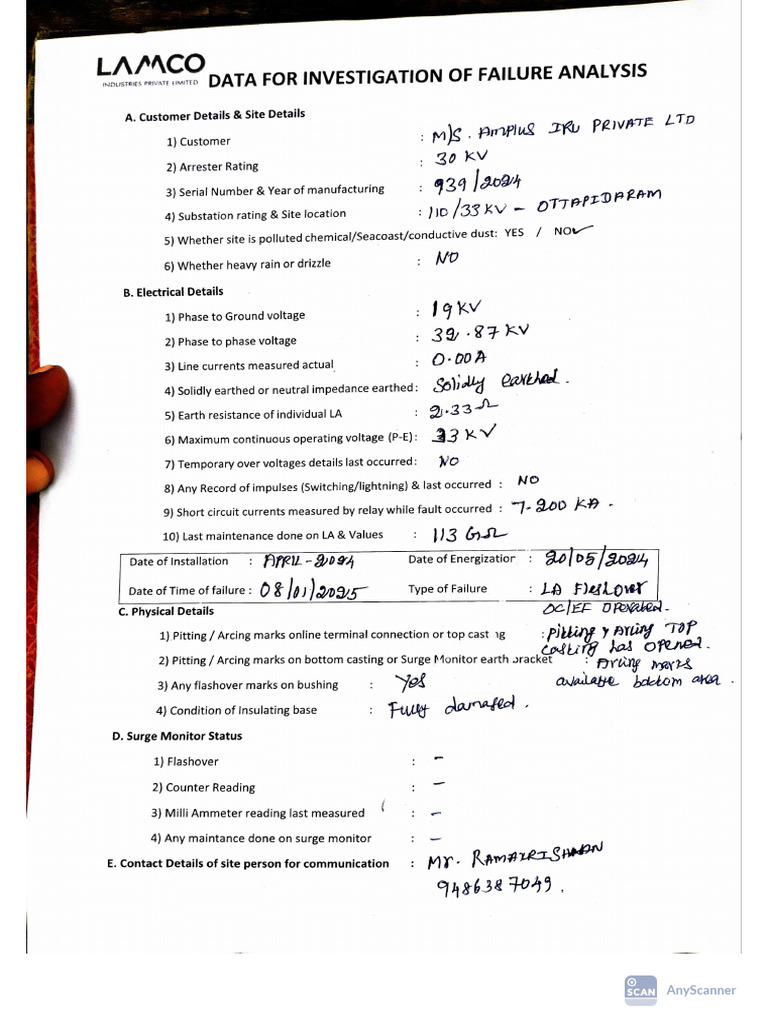 LAMCO
INDUSTRIES PRIVATE LIMITED
DATA FOR INVESTIGATION OF FAILURE ANALYSIS
A. Customer Details & Site Details
1) Customer : M/S. AMPLUS IRU PRIVATE LTD
2) Arrester Rating : 30 KV
3) Serial Number & Year of manufacturing : 939/2024
4) Substation rating & Site location : 110/33KV - OTTAPIDARAM
5) Whether site is polluted chemical/Seacoast/conductive dust: YES / NO✓
6) Whether heavy rain or drizzle : NO
B. Electrical Details
1) Phase to Ground voltage : 19KV
2) Phase to phase voltage : 32.87 KV
3) Line currents measured actual : 0.00A
4) Solidly earthed or neutral impedance earthed: Solidly earthed.
5) Earth resistance of individual LA : 2.33Ω
6) Maximum continuous operating voltage (P-E): 33 KV
7) Temporary over voltages details last occurred: NO
8) Any Record of impulses (Switching/lightning) & last occurred : NO
9) Short circuit currents measured by relay while fault occurred : 7.200 KA.
10) Last maintenance done on LA & Values : 113 GΩ
Date of Installation : APRIL-2024 Date of Energization : 20/05/2024
Date of Time of failure : 08/01/2025 Type of Failure : LA Fleshover
OC/EF Operated.
C. Physical Details
1) Pitting / Arcing marks online terminal connection or top casting : pitting & Arcing TOP
casting has opened.
2) Pitting / Arcing marks on bottom casting or Surge Monitor earth bracket : Arcing marks
available bottom area.
3) Any flashover marks on bushing : Yes
4) Condition of Insulating base : Fully damaged.
D. Surge Monitor Status
1) Flashover : -
2) Counter Reading : -
3) Milli Ammeter reading last measured : -
4) Any maintance done on surge monitor : -
E. Contact Details of site person for communication : Mr. RAMAKRISHNAN
9486387049.
SCAN AnyScanner